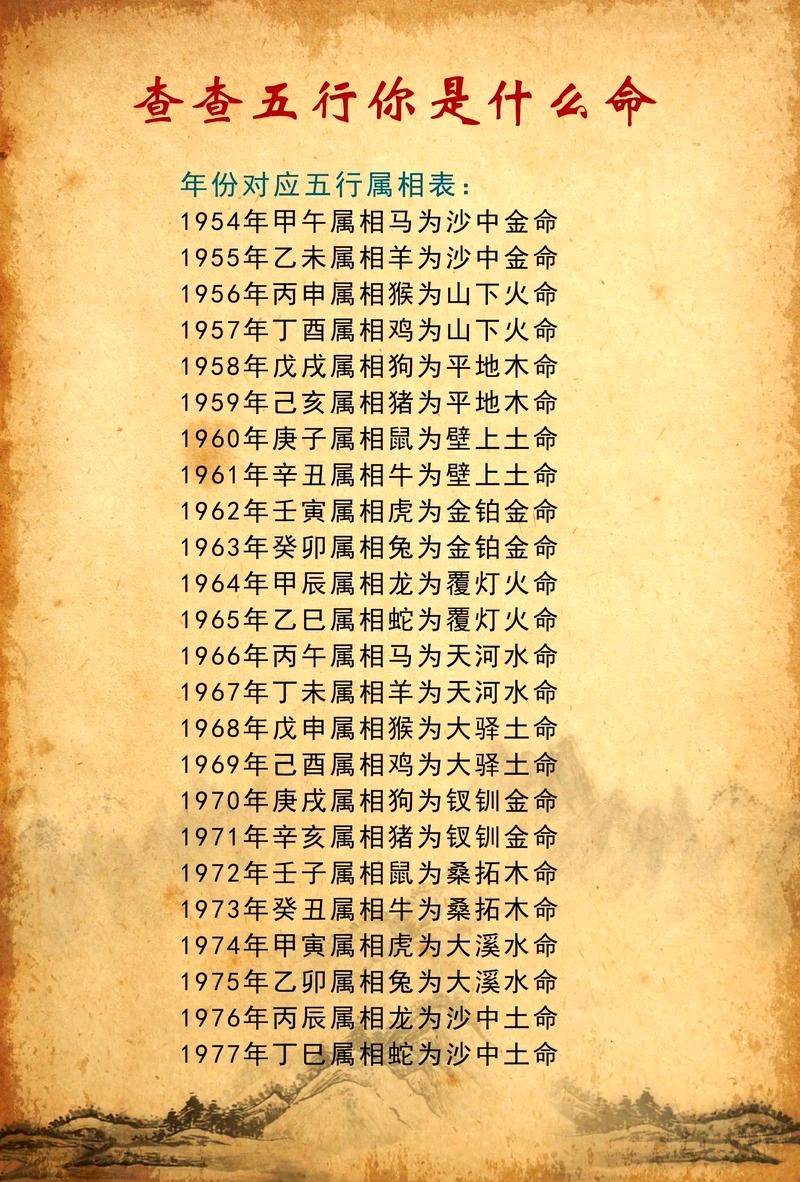 查查五行你是什么命
年份对应五行属相表:
1954年甲午属相马为沙中金命
1955年乙未属相羊为沙中金命
1956年丙申属相猴为山下火命
1957年丁酉属相鸡为山下火命
1958年戊戌属相狗为平地木命
1959年己亥属相猪为平地木命
1960年庚子属相鼠为壁上土命
1961年辛丑属相牛为壁上土命
1962年壬寅属相虎为金铂金命
1963年癸卯属相兔为金铂金命
1964年甲辰属相龙为覆灯火命
1965年乙巳属相蛇为覆灯火命
1966年丙午属相马为天河水命
1967年丁未属相羊为天河水命
1968年戊申属相猴为大驿土命
1969年己酉属相鸡为大驿土命
1970年庚戌属相狗为钗钏金命
1971年辛亥属相猪为钗钏金命
1972年壬子属相鼠为桑拓木命
1973年癸丑属相牛为桑拓木命
1974年甲寅属相虎为大溪水命
1975年乙卯属相兔为大溪水命
1976年丙辰属相龙为沙中土命
1977年丁巳属相蛇为沙中土命